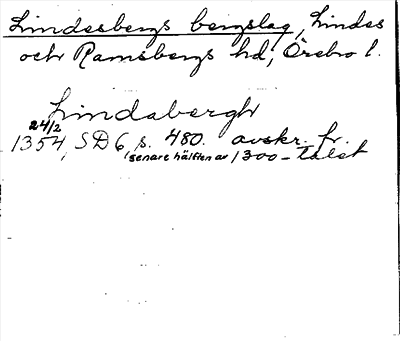 Lindesbergs bergslag, Lindes
och Ramsbergs hd, Örebro l.
Lindabergh
24/2
1354, SD 6, s. 480. avskr. fr.
senare hälften av 1300-talet